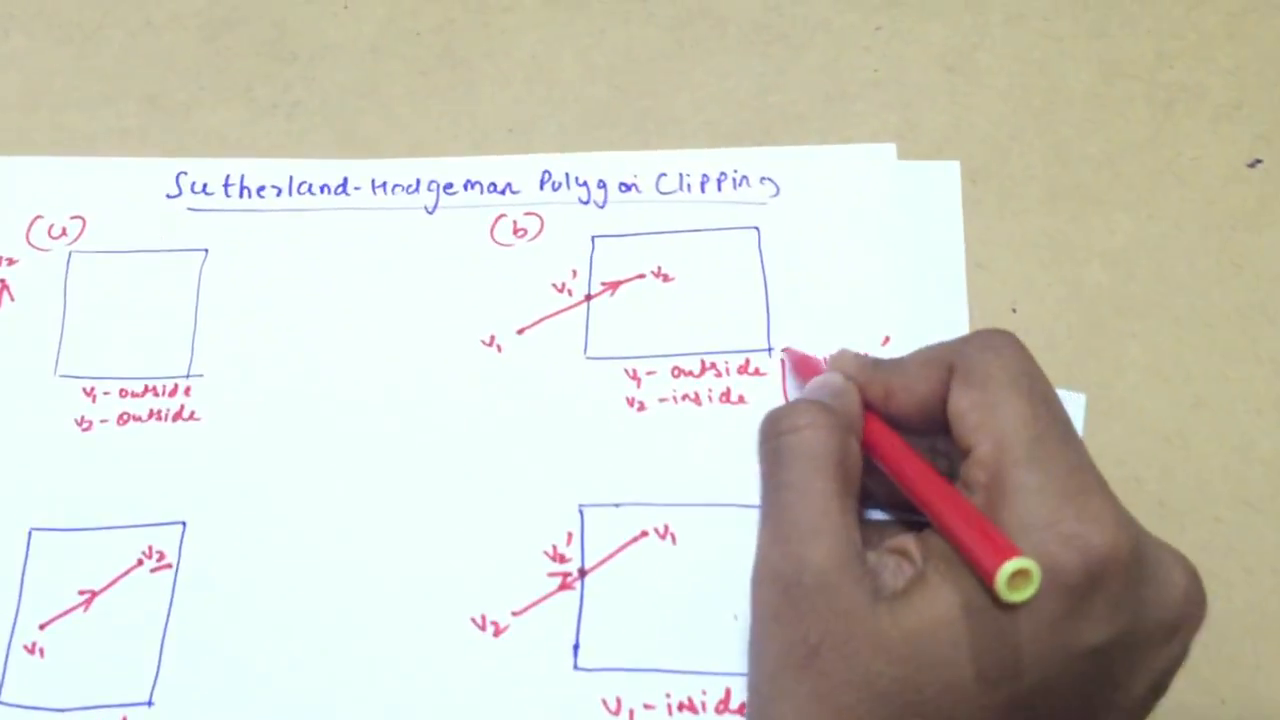 Sutherland-Hodgeman Polygon Clipping
(a)
(b)
v2
v1'
v1
v1-outside
v2-outside
v1-outside
v2-inside
v2
v1
v1
v2'
v2
v1-inside